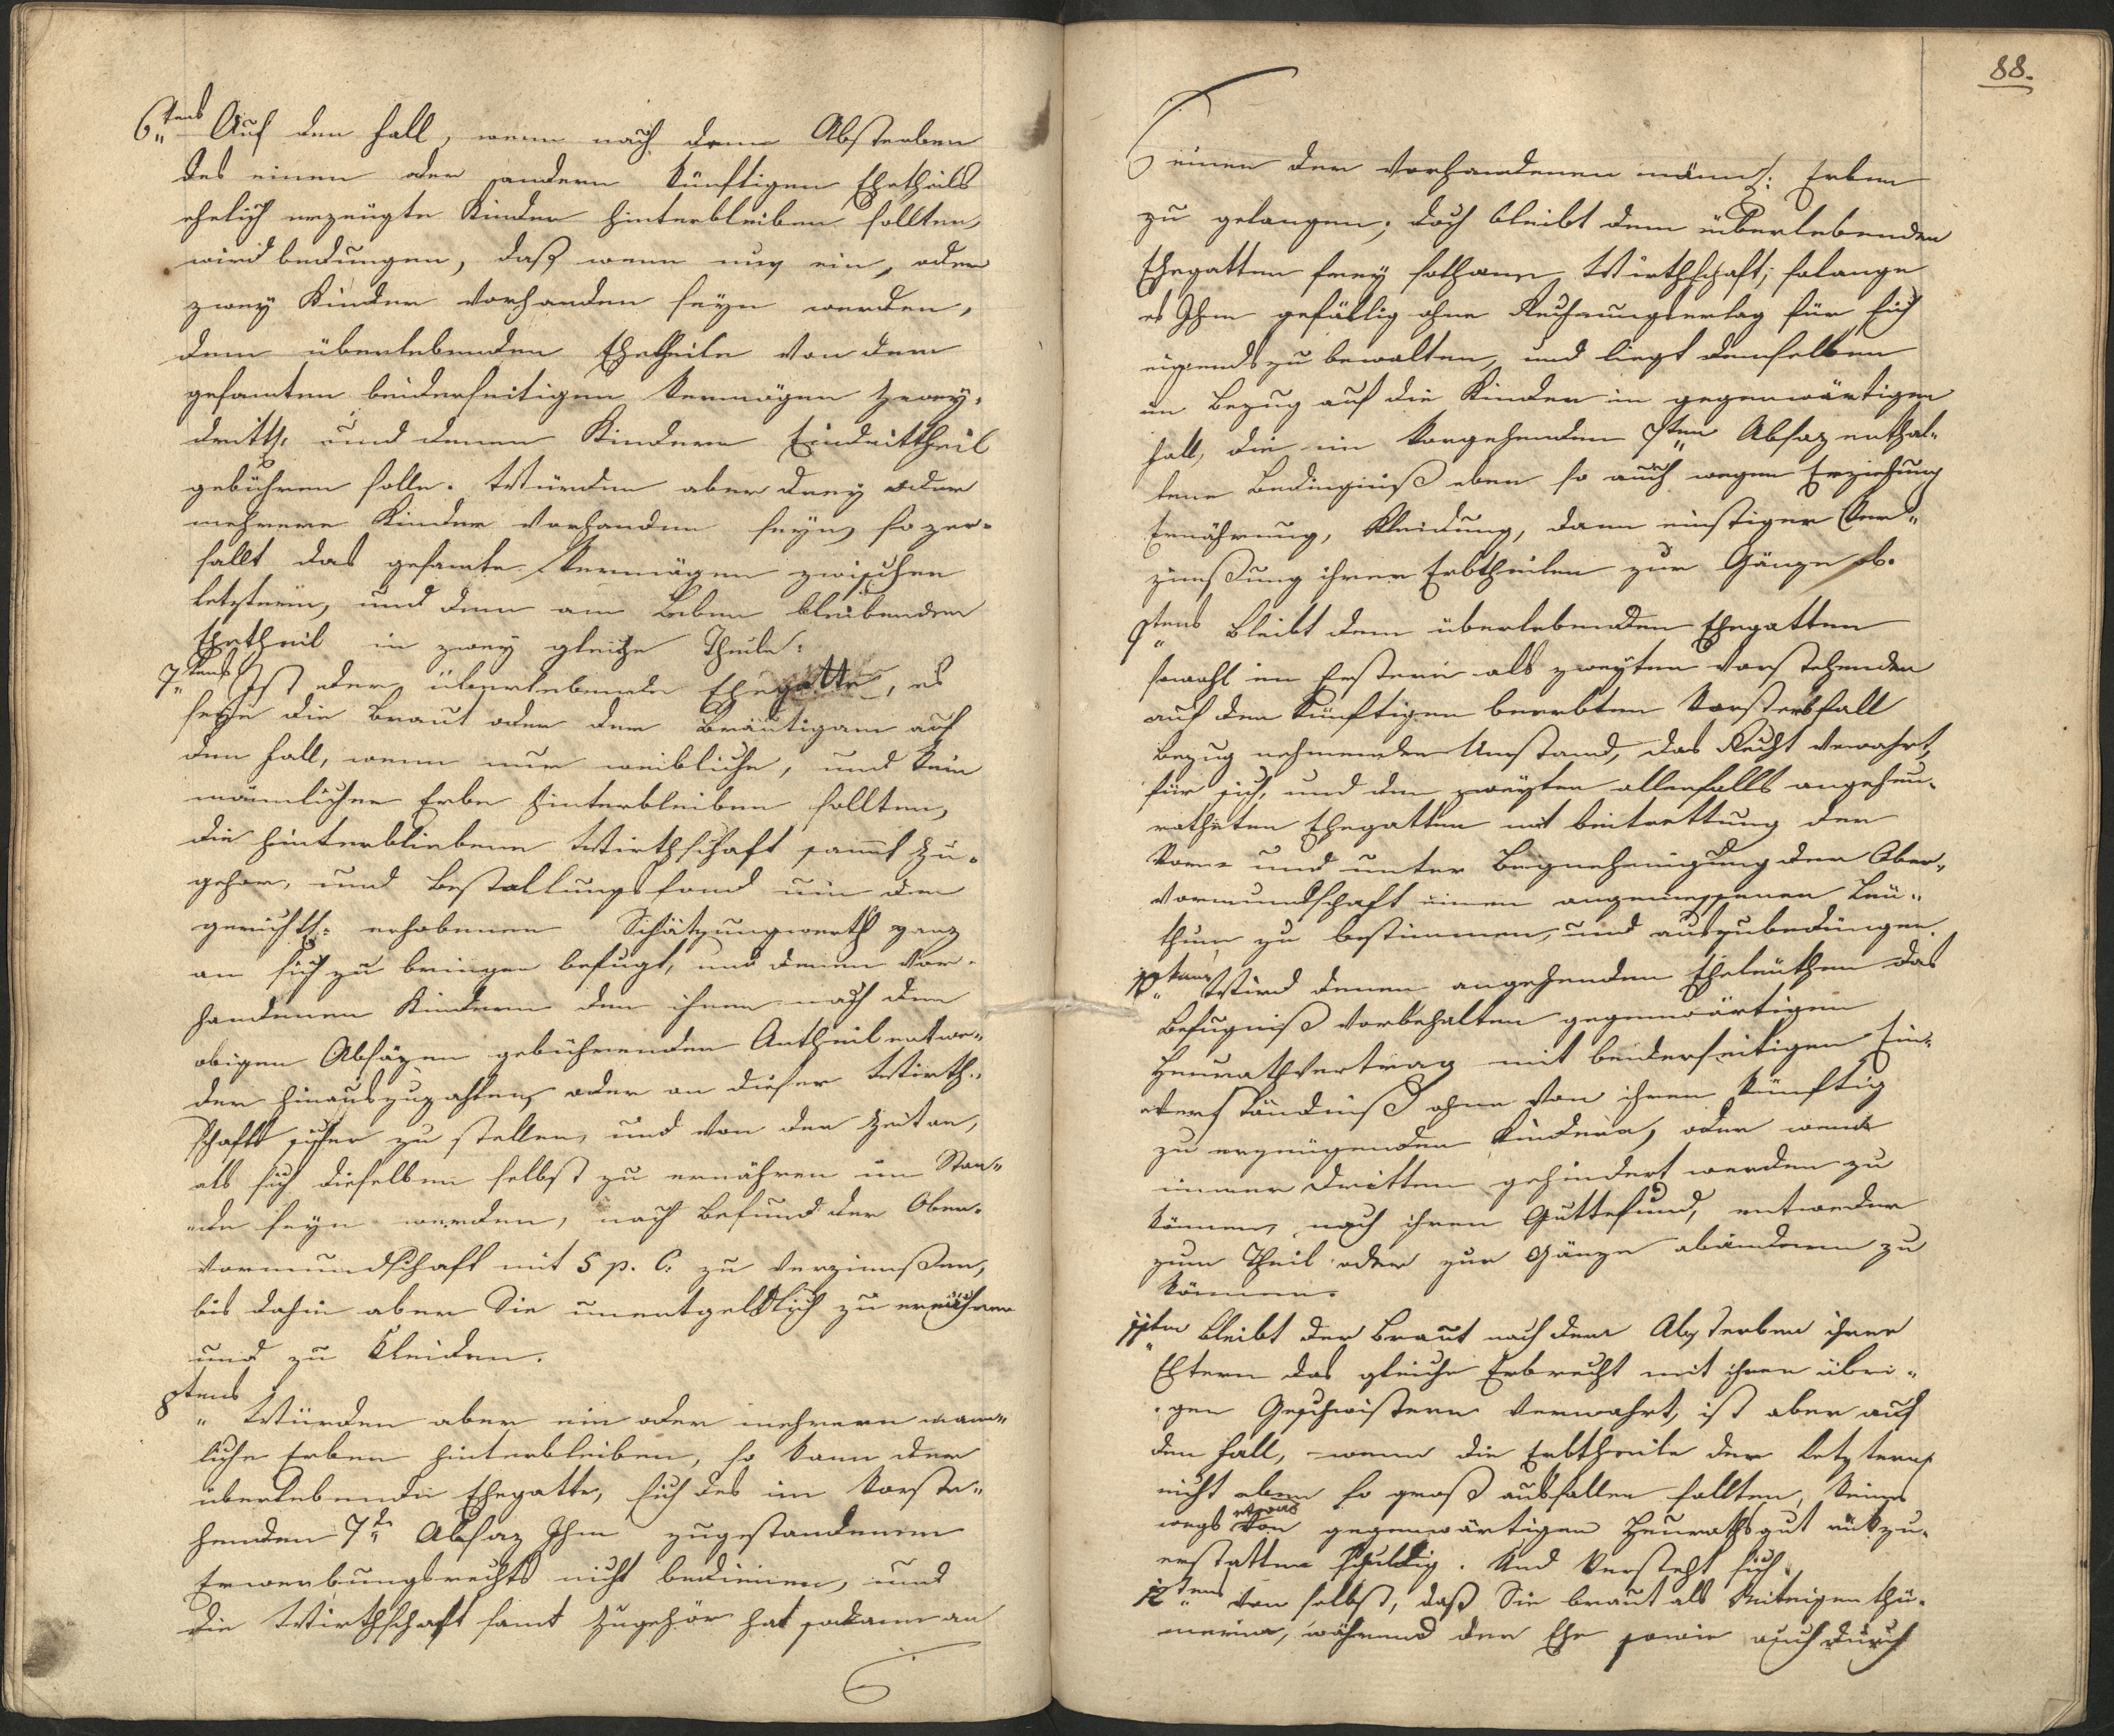 6tens Auf den Fall, wenn nach dem Absterben
des einen oder andern künftigen Ehetheils
ehelich erzeugte Kinder hinterbleiben sollten,
wird bedungen, daß wenn nur ein, oder
zwey Kinder vorhanden seyn werden,
dem überlebenden Ehetheile von dem
gesamten beiderseitigen Vermögen Zwey-
drittl. und denen Kindern Eindrittheil
gebühren solle. Würden aber drey oder
mehrere Kinder vorhanden seyn, so zer-
fallt das gesamte Vermögen zwischen
letztern, und dem am Leben bleibenden
Ehetheil in zwey gleiche Theile.
7tens Ist der überlebende Ehegatte, es
seye die Braut oder der Bräutigam auf
den Fall, wenn nur weibliche, und kein
männlicher Erbe hinterbleiben sollten,
die hinterbliebene Wirthschaft sammt Zu-
gehör, und Bestallungsfond um den
gerichtl: erhobenen Schätzungwerth ganz
an sich zu bringen befugt, und denen vor-
handenen Kindern den ihnen nach den
obigen Absäzen gebührenden Antheil entwe-
der hinauszuzahlen, oder an dieser Wirth-
schaft sicher zu stellen, und von der Zeit an,
als sich dieselben selbst zu ernähren im Stan-
de seyn werden, nach Befund der Ober-
vormundschaft mit 5 p. C. zu verzinnßen,
bis dahin aber Sie unentgeldlich zu ernähren
und zu kleiden.
8tens
Würden aber ein oder mehrere mann-
liche Erben hinterbleiben, so kann der
überlebende Ehegatte, sich des im Vorste-
henden 7tn Absaz Ihm zugestandenen
Erwerbungsrechts nicht bedienen, und
die Wirthschaft samt Zugehör hat sodann an
88.
einen der vorhandenen männl: Erben
zu gelangen; doch bleibt dem überlebenden
Ehegatten frey sothane Wirthschaft, solange
es Ihm gefällig ohne Rechnungserlag für sich
eigends zu bewalten, und liegt demselben
in Bezug auf die Kinder in gegenwärtigen
Fall, die im Vorgehenden 7ten Absaz enthal-
tene Bedingniß eben so auch wegen Erziehung
Ernährung, Kleidung, dann einstiger Ver-
zinnßung ihrer Erbtheilen zur Gänze ob.
9tens Bleibt dem überlebenden Ehegatten
sowohl im Erstern als zweyten vorstehenden
auf den künftigen beerbten Vorsterbfall
Bezug nehmenden Umstand, das Recht verwahrt,
für sich, und den zweyten allenfalls angeheu-
ratheten Ehegatten mit beitrettung der
Vor- und unter Begnehmigung der Ober-
vormundschaft einen angemessenen Leu-
thum zu bestimmen, und auszubedüngen.
10tens Wird denen angehenden Eheleüthen das
Befugniß vorbehalten gegenwärtigen
Heurathvertrag mit beiderseitigen Ein-
verständniß ohne von ihren künftig
zu erzeugenden Kindern, oder wem
immer Dritten gehindert werden zu
können, nach ihren Guttefund, entweder
zum Theil oder zur Gänze abändern zu
können.
11ten Bleibt der Braut nach dem Absterben ihrer
Eltern das gleiche Erbrecht mit ihren übri-
gen Geschwistern verwahrt, ist aber auf
den Fall, wenn die Erbtheile der letztern
nicht eben so groß ausfallen sollten, keines
wegs etwas von gegenwärtigen Heurathsgut rükzu-
erstatten schuldig. Und Versteht sich
12tens von selbst, daß Sie braut als Miteigenthü-
merin, während der Ehe sowie auch durch